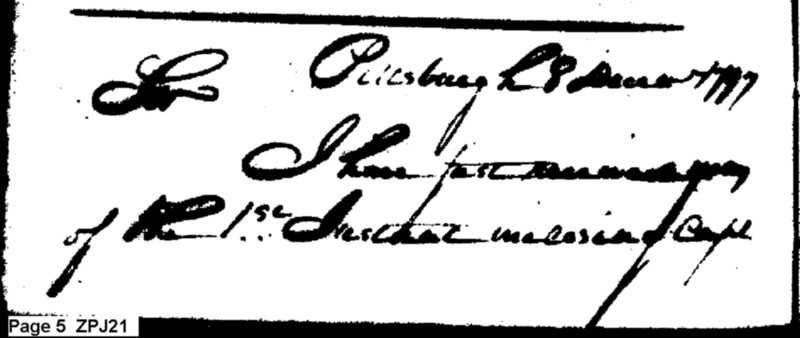 Sir Pittsburgh 8 Decem 1797
I have just received yours
of the 1st Instant inclosing Capt
Page 5 ZPJ21